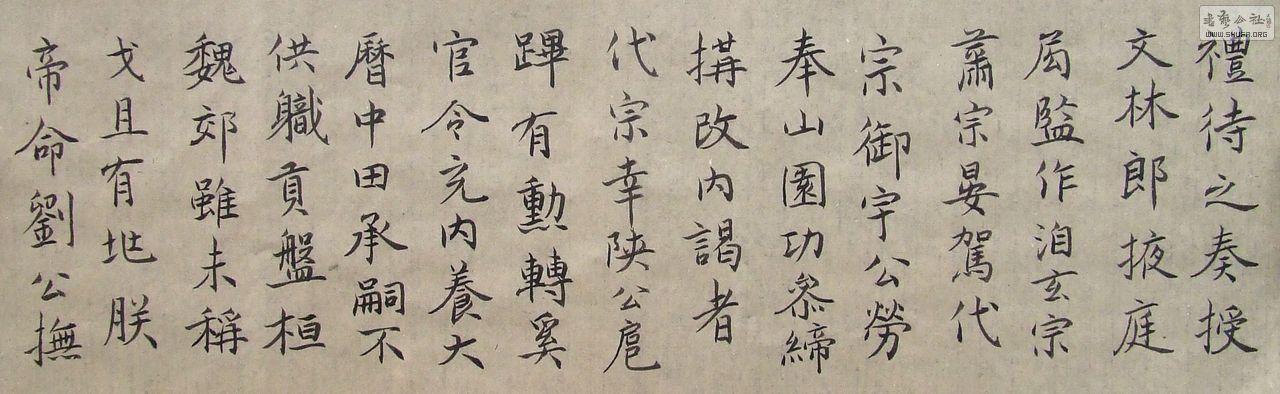 禮待之奏授
文林郎掖庭
局監作洎玄宗
蕭宗晏駕代
宗御宇公勞
奉山園功叅締
搆改內謁者
代宗幸陝公扈
蹕有勳轉奚
官令充內養大
曆中田承嗣不
供職貢盤桓
魏郊雖未稱
戈且有地朕
帝命劉公撫
WWW.SHUFA.ORG